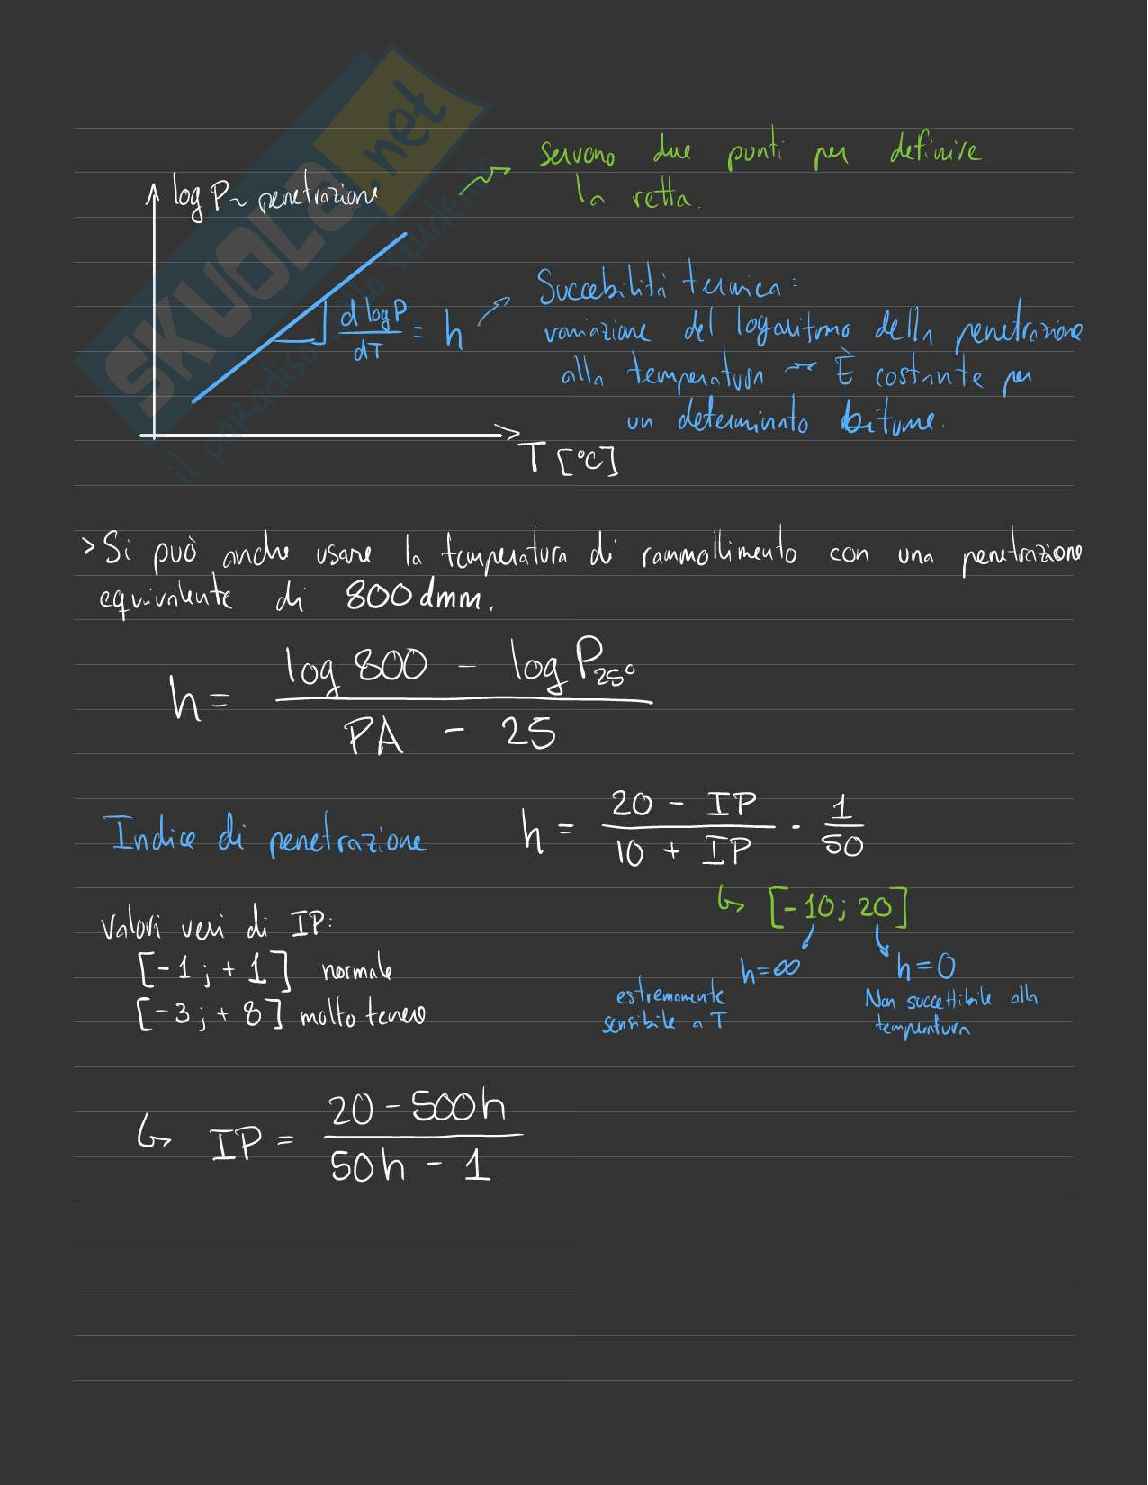 SKUOLA.net
log P ~ penetrazione
servono due punti per definire
la retta.
d log P / dT = h
Succebilità termica:
variazione del logaritmo della penetrazione
alla temperatura → È costante per
un determinato bitume.
T [°C]
> Si può anche usare la temperatura di rammollimento con una penetrazione
equivalente di 800 dmm.
h = (log 800 - log P25°) / (PA - 25)
Indice di penetrazione
h = (20 - IP) / (10 + IP) · 1/50
↳ [-10; 20]
Valori veri di IP:
[-1 ; +1] normale
[-3 ; +8] molto tenero
h=∞
estremamente
sensibile a T
h=0
Non succettibile alla
temperatura
↳ IP = (20 - 500h) / (50h - 1)